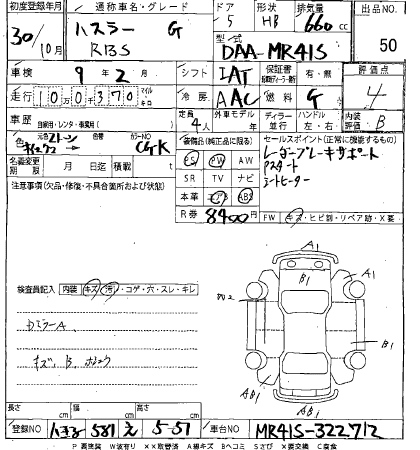 初度登録年月 通称車名・グレード ドア 形状 排気量 出品NO.
30/10月 ハスラー G 5 HB 660cc 50
RBS
型式 DAA-MR41S
車検 9年2月 シフト IAT 保証書 有・無 評価点
走行 10万0千370 マイル キロ 冷房 AAC 燃料 G 4
車歴 自家用・レンタ・事業用( ) 定員 4人 外車モデル年 年 ディーラー 並行 ハンドル 左・右 内装評価 B
色 元色 2トーン 色替 カラーNO CGK 装備品(純正品に限る) セールスポイント(正常に機能するもの)
名義変更期限 月 日迄 積載 t PS PW AW レーダーブレーキサポート
注意事項(欠品・修復・不具合箇所および状態) SR TV ナビ Pスタート
本革 エアB ABS シートヒーター
R券 8400円 FW キズ・ヒビ割・リペア跡・X要
検査員記入 内装 キズ・汚れ・コゲ・穴・スレ・キレ
DミラーA
キズ、B、
A1
A1
B1
B1
AB1
AB1
長さ cm 幅 cm 高さ cm
登録NO 581 え 5-51 車台NO MR41S-322712
P 要塗装 W波有り ××取替済 A線キズ Bヘコミ Sさび X要交換 C腐食